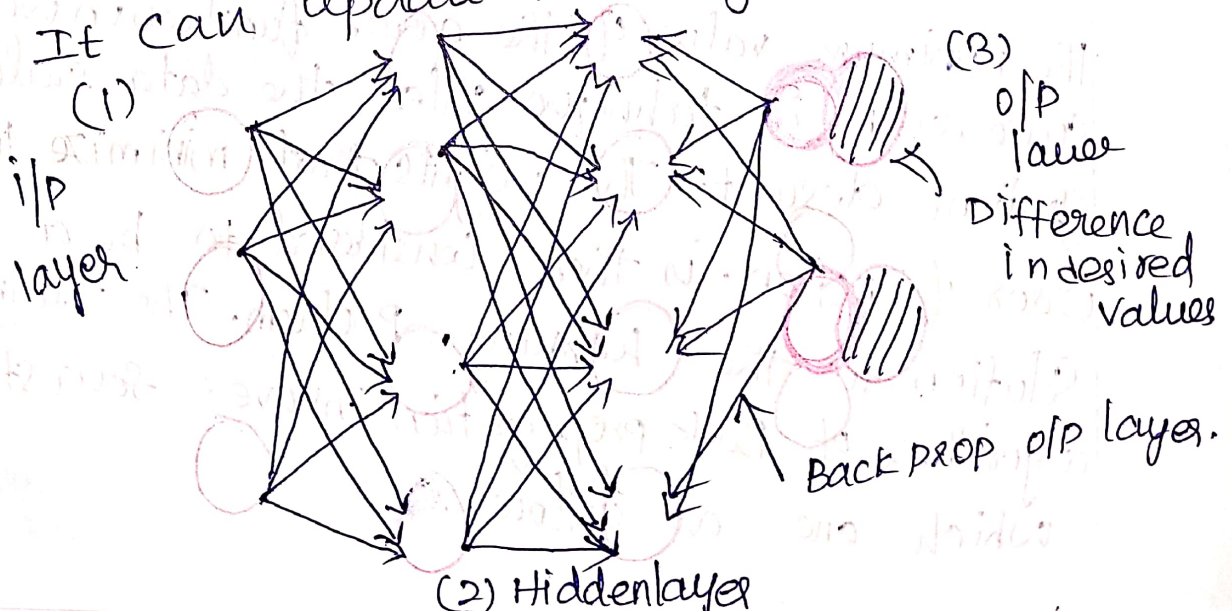 It can
(1)
i/p
layer
(3)
o/p
lauer
Difference
in desired
values
Back prop o/p layer.
(2) Hidden layer